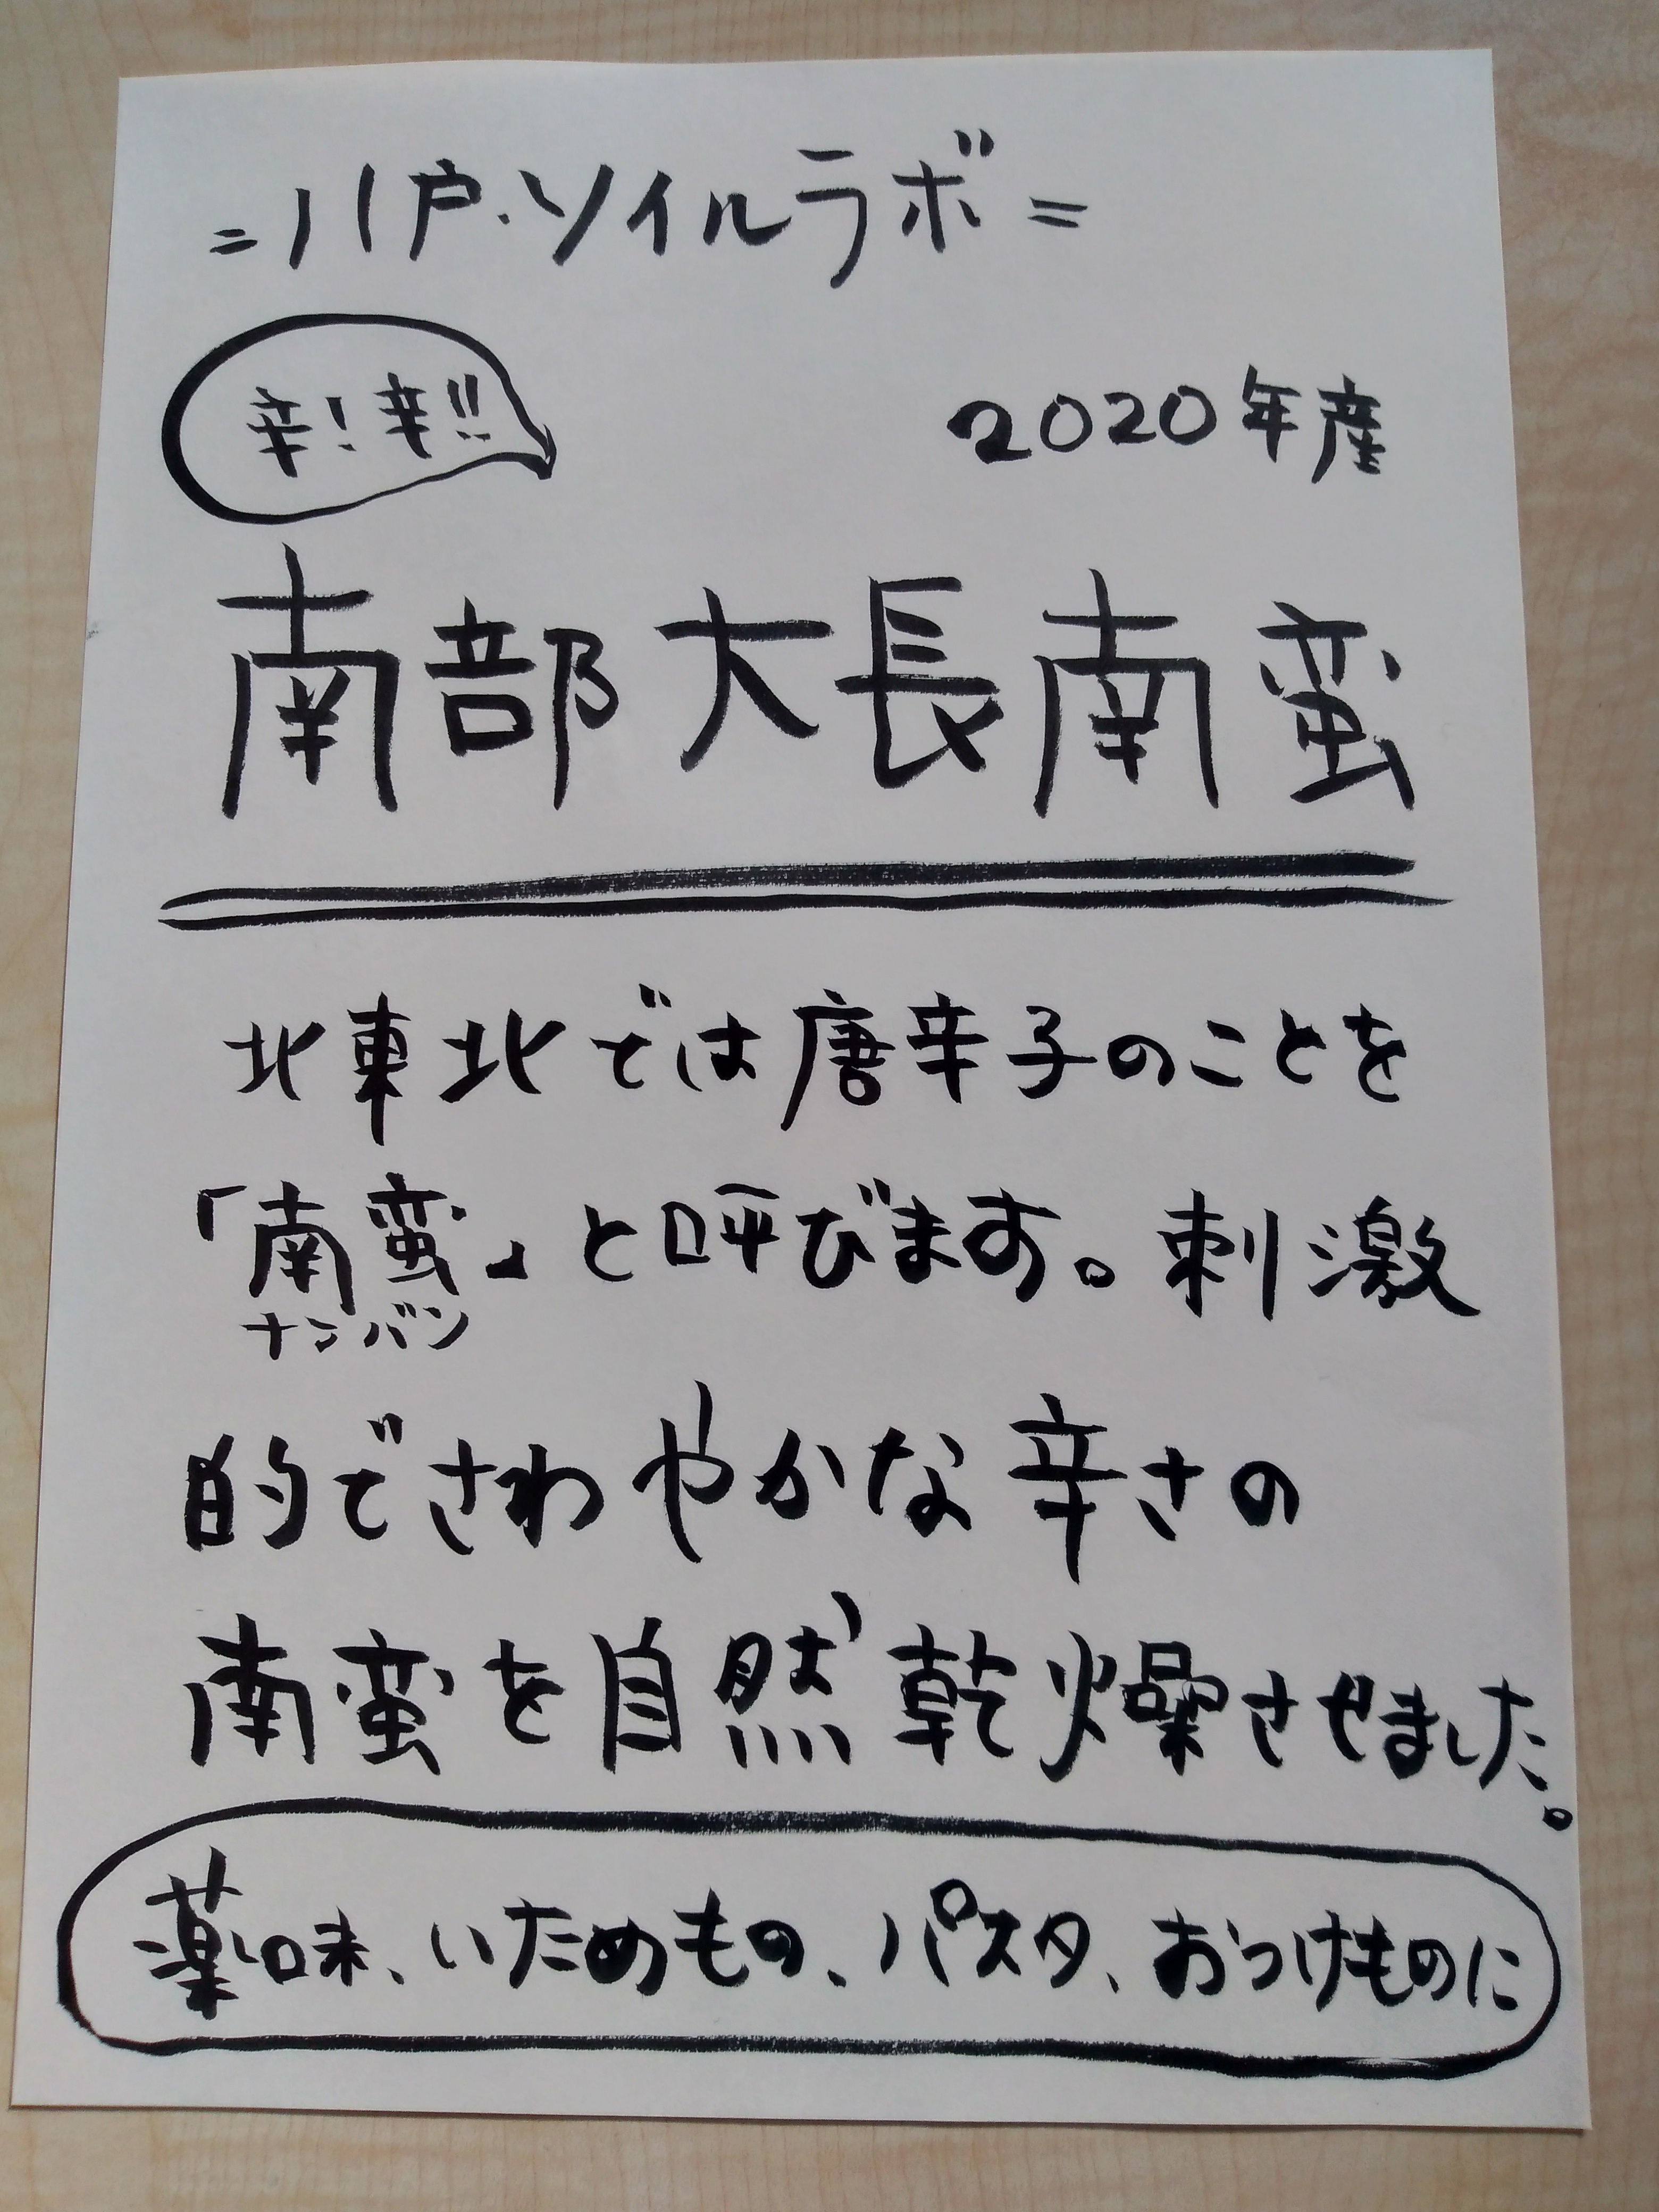 =八戸・ソイルラボ=
辛!辛!!
2020年産
南部大長南蛮
北東北では唐辛子のことを
「南蛮」と呼びます。刺激
ナンバン
的でさわやかな辛さの
南蛮を自然乾燥させました。
薬味、いためもの、パスタ、おつけものに